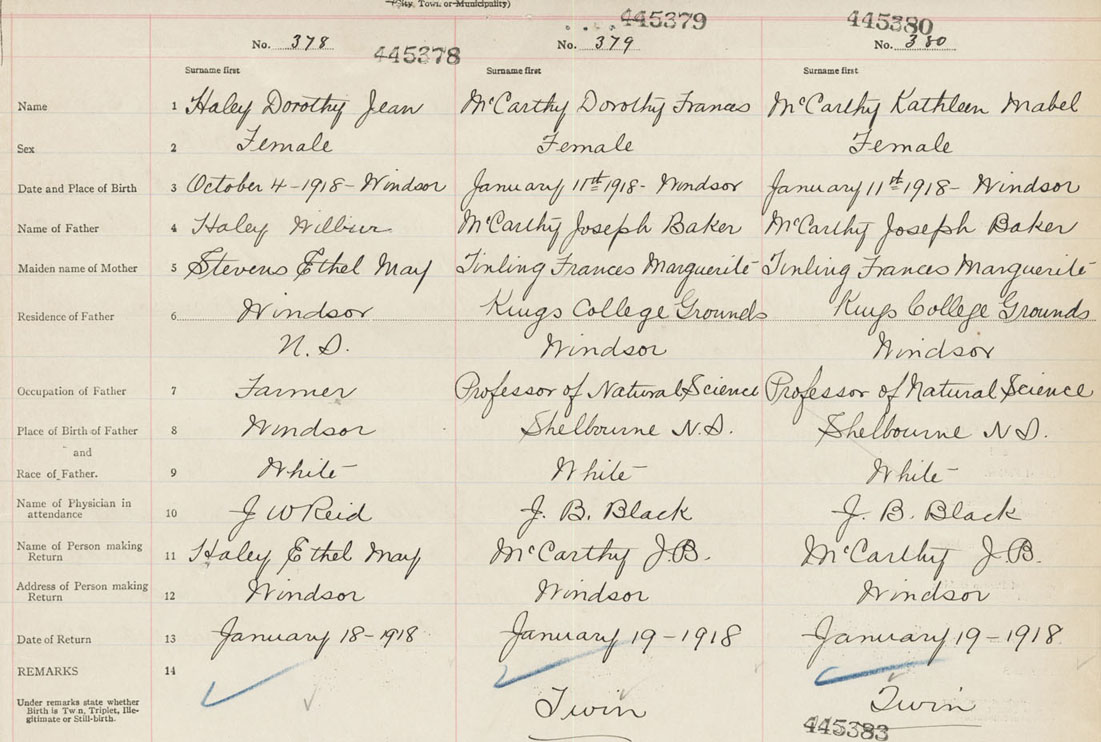 (City, Town or Municipality)
445379 445380
No. 378 445378 No. 379 No. 380
Surname first Surname first Surname first
Name 1 Haley Dorothy Jean McCarthy Dorothy Frances McCarthy Kathleen Mabel
Sex 2 Female Female Female
Date and Place of Birth 3 October 4-1918- Windsor January 11th 1918- Windsor January 11th 1918- Windsor
Name of Father 4 Haley Wilbur McCarthy Joseph Baker McCarthy Joseph Baker
Maiden name of Mother 5 Stevens Ethel May Tinling Frances Marguerite Tinling Frances Marguerite
Residence of Father 6 Windsor Kings College Grounds Kings College Grounds
N.S. Windsor Windsor
Occupation of Father 7 Farmer Professor of Natural Science Professor of Natural Science
Place of Birth of Father 8 Windsor Shelbourne N.S. Shelbourne N.S.
and
Race of Father. 9 White White White
Name of Physician in
attendance 10 J W Reid J. B. Black J. B. Black
Name of Person making
Return 11 Haley Ethel May McCarthy J.B. McCarthy J.B.
Address of Person making
Return 12 Windsor Windsor Windsor
Date of Return 13 January 18-1918 January 19-1918 January 19-1918
REMARKS 14
Under remarks state whether
Birth is Twin, Triplet, Ille-
gitimate or Still-birth. Twin Twin
445383